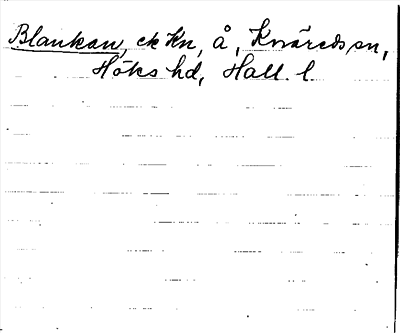 Blankan, ek Kn, å, Knäreds sn,
Höks hd, Hall. l.